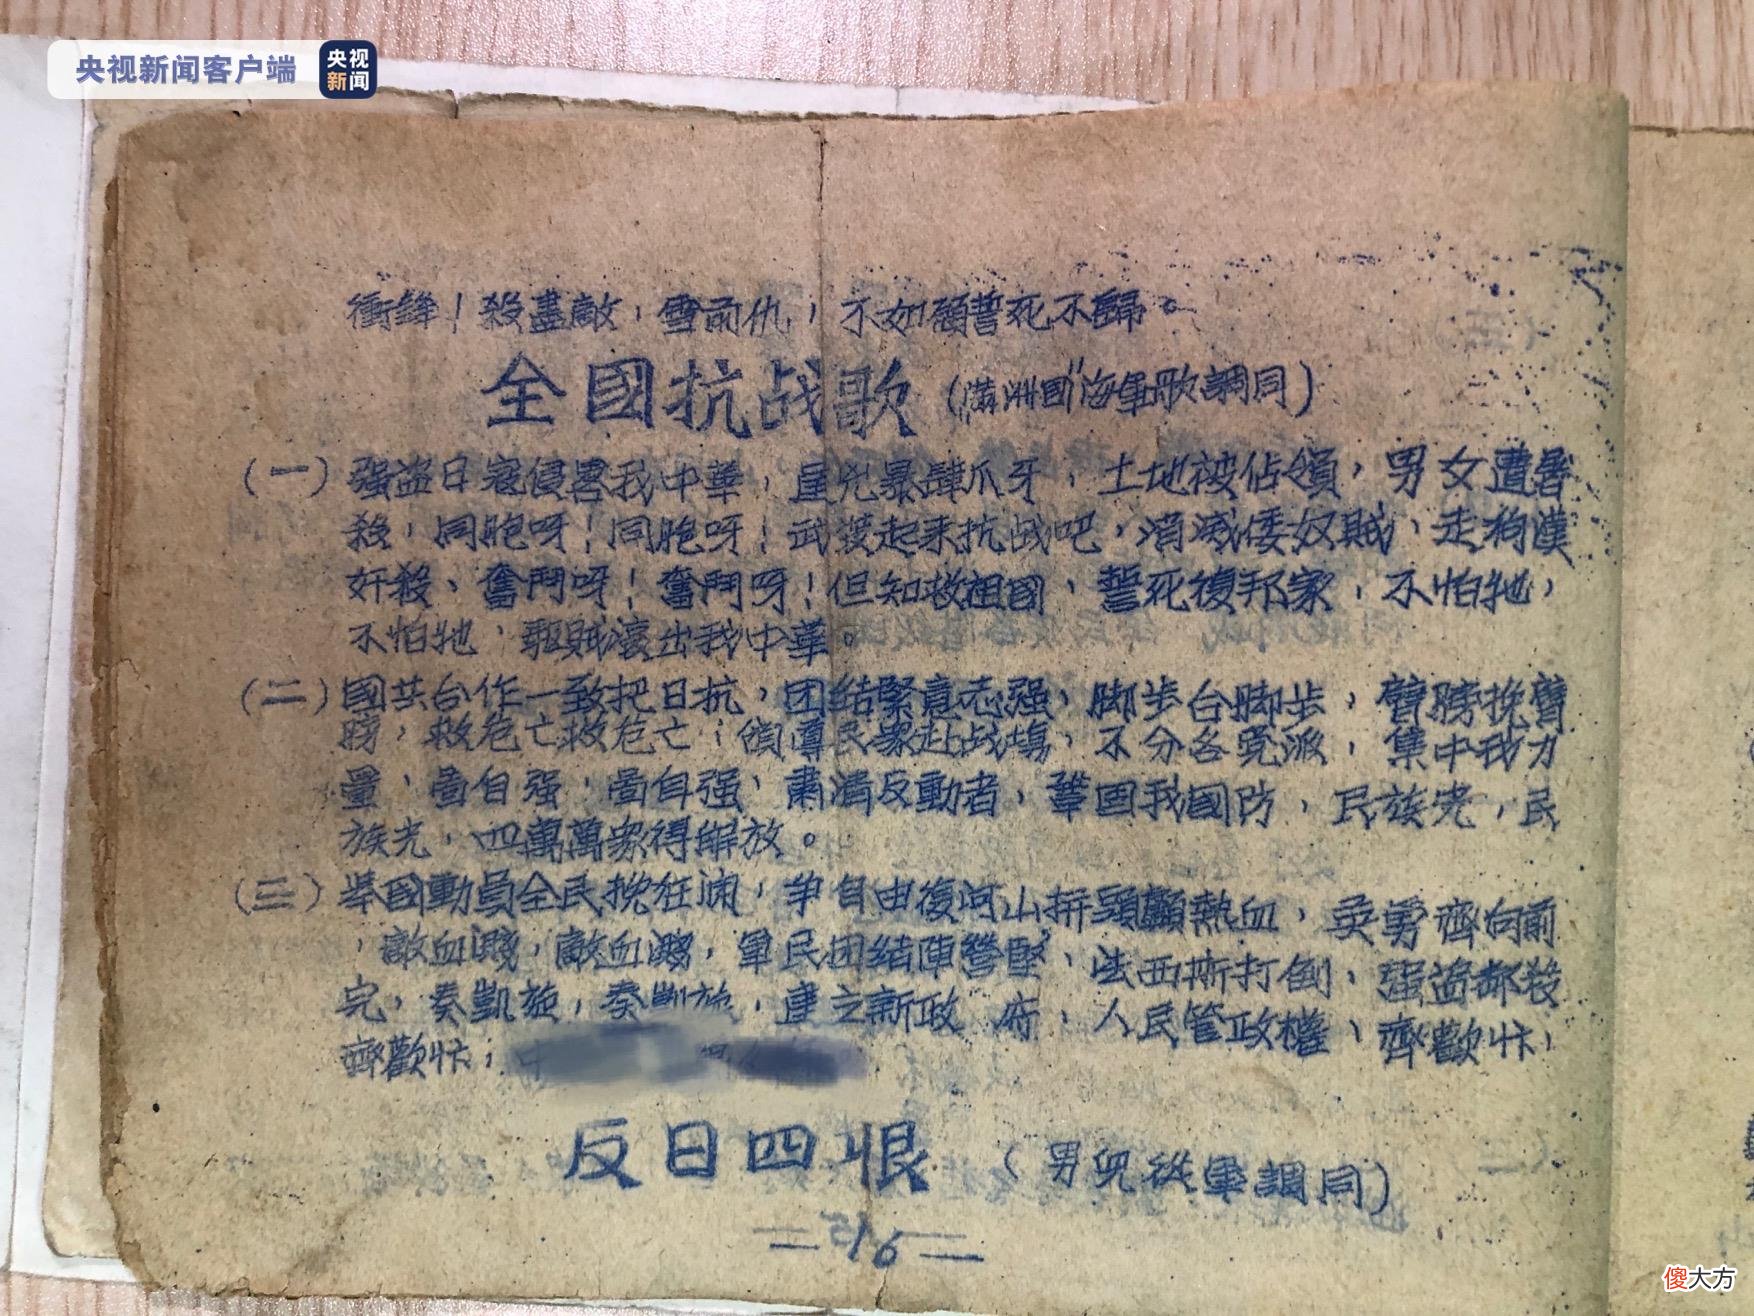 央视新闻客户端
央视
新闻
衝鋒！殺盡敵，雪前仇，不如願誓死不歸。
全國抗战歌（"满洲國"海軍歌調同）
（一）强盗日寇侵害我中華，逞兇暴肆爪牙，土地被佔領，男女遭害
殺，同胞呀！同胞呀！武装起来抗战吧，消滅倭奴賊、走狗漢
奸殺、奮鬥呀！奮鬥呀！但知救祖國、誓死復邦家，不怕牠，
不怕牠，驱賊滾出我中華。
（二）國共合作一致把日抗，团結緊意志强、脚步合脚步，臂膀挽臂
膀，救危亡救危亡；領導民眾赴战場、不分各党派，集中我力
量，圖自强，圖自强，肅清反動者，鞏固我國防，民族光，民
族光，四萬萬眾得解放。
（三）舉國動員全民挽狂澜，争自由復河山拼頭顱熱血，英勇齊向前
，敵血濺，敵血濺，軍民团結陣營堅、法西斯打倒，强盗都殺
完，奏凱旋，奏凱旋，建立新政府，人民管政權、齊歡忭，
齊歡忭；
反日四恨（男兒從軍調同）
傻大方